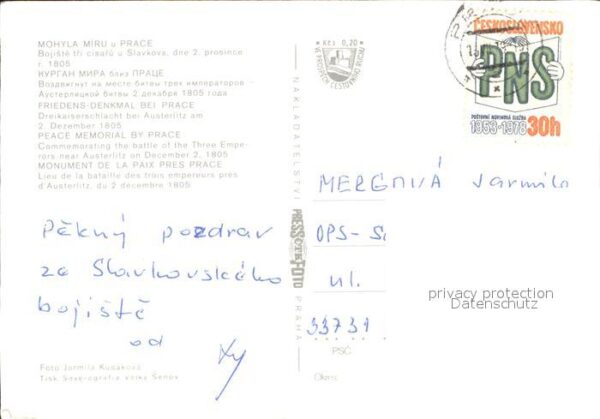 MOHYLA MÍRU u PRACE
Bojiště tří císařů u Slavkova, dne 2. prosince
r. 1805
КУРГАН МИРА близ ПРАЦЕ
Воздвигнут на месте битвы трех императоров -
Аустерлицкой битвы 2 декабря 1805 года
FRIEDENS-DENKMAL BEI PRACE
Dreikaiserschlacht bei Austerlitz am
2. Dezember 1805
PEACE MEMORIAL BY PRACE
Commemorating the battle of the Three Empe-
rors near Austerlitz on December 2, 1805
MONUMENT DE LA PAIX PRES PRACE
Lieu de la bataille des trois empereurs près
d'Austerlitz, du 2 décembre 1805
Pěkný pozdrav
ze Slavkovského
bojiště
od
Foto Jarmila Kusáková
Tisk Velký Šenov
Kčs 0,20
NAKLADATELSTVÍ
PRESSFOTO
PRAHA
ČESKOSLOVENSKO
PNS
POŠTOVNÍ NOVINOVÁ SLUŽBA
1953-1978 30h
Jarmila
OPS-
ul.
33731
PSČ
Okres:
privacy protection
Datenschutz